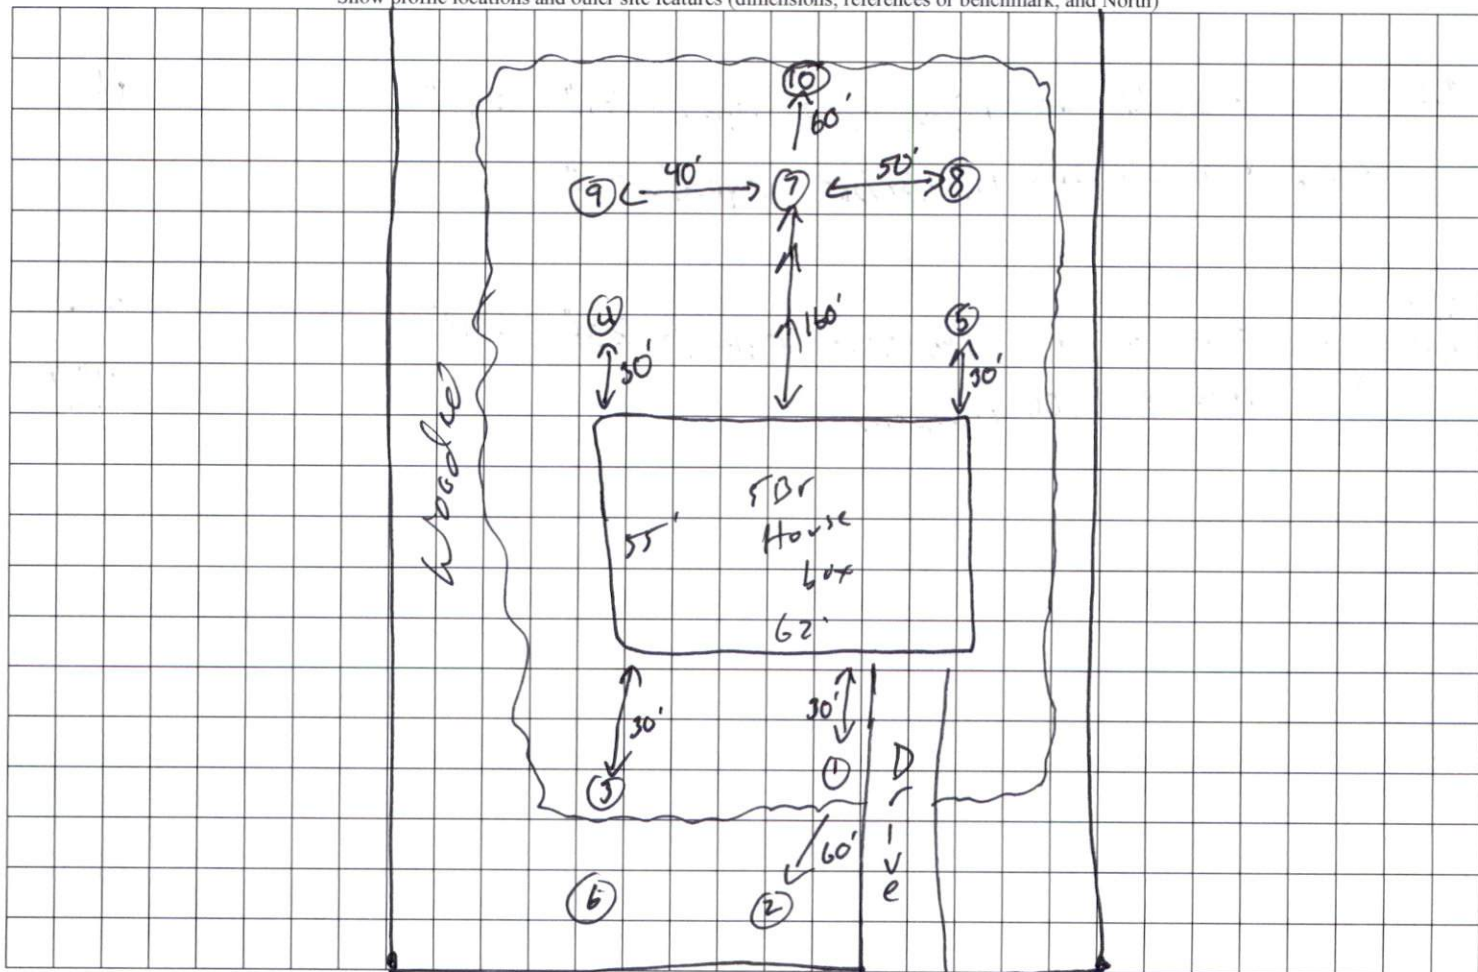 Show profile locations and other site features (dimensions, references or benchmark, and North)
10
60'
9
40'
7
50'
8
4
160'
5
30'
30'
Wooded
5Br
House
box
55'
62'
30'
30'
3
1
Drive
60'
6
2